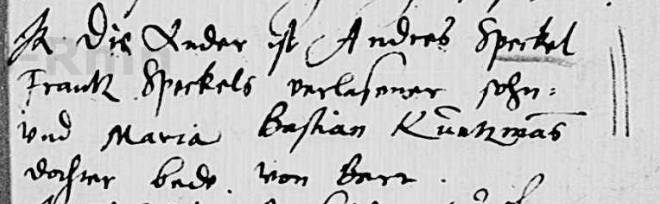 Die Ander ist Andres Speckel
Frantz Speckels verlasener sohn
vnd Maria Bastian Kuntzmans
dochter bede von Barr.